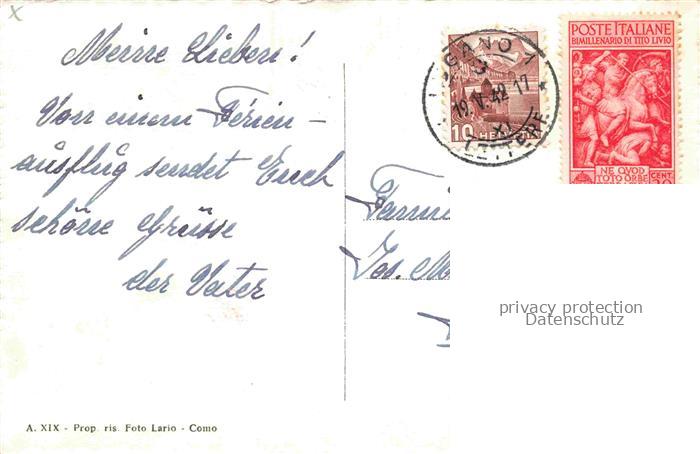 Meine Lieben!
Von einem Ferien-
ausflug sendet Euch
schöne Grüsse
der Vater
A. XIX - Prop. ris. Foto Lario - Como
LUGANO 1
19.V.42 17
LETTERE
10 HELVETIA
POSTE ITALIANE
BIMILLENARIO DI TITO LIVIO
NE QVOD
TOTO ORBE
CENT.
Jos. M
privacy protection
Datenschutz